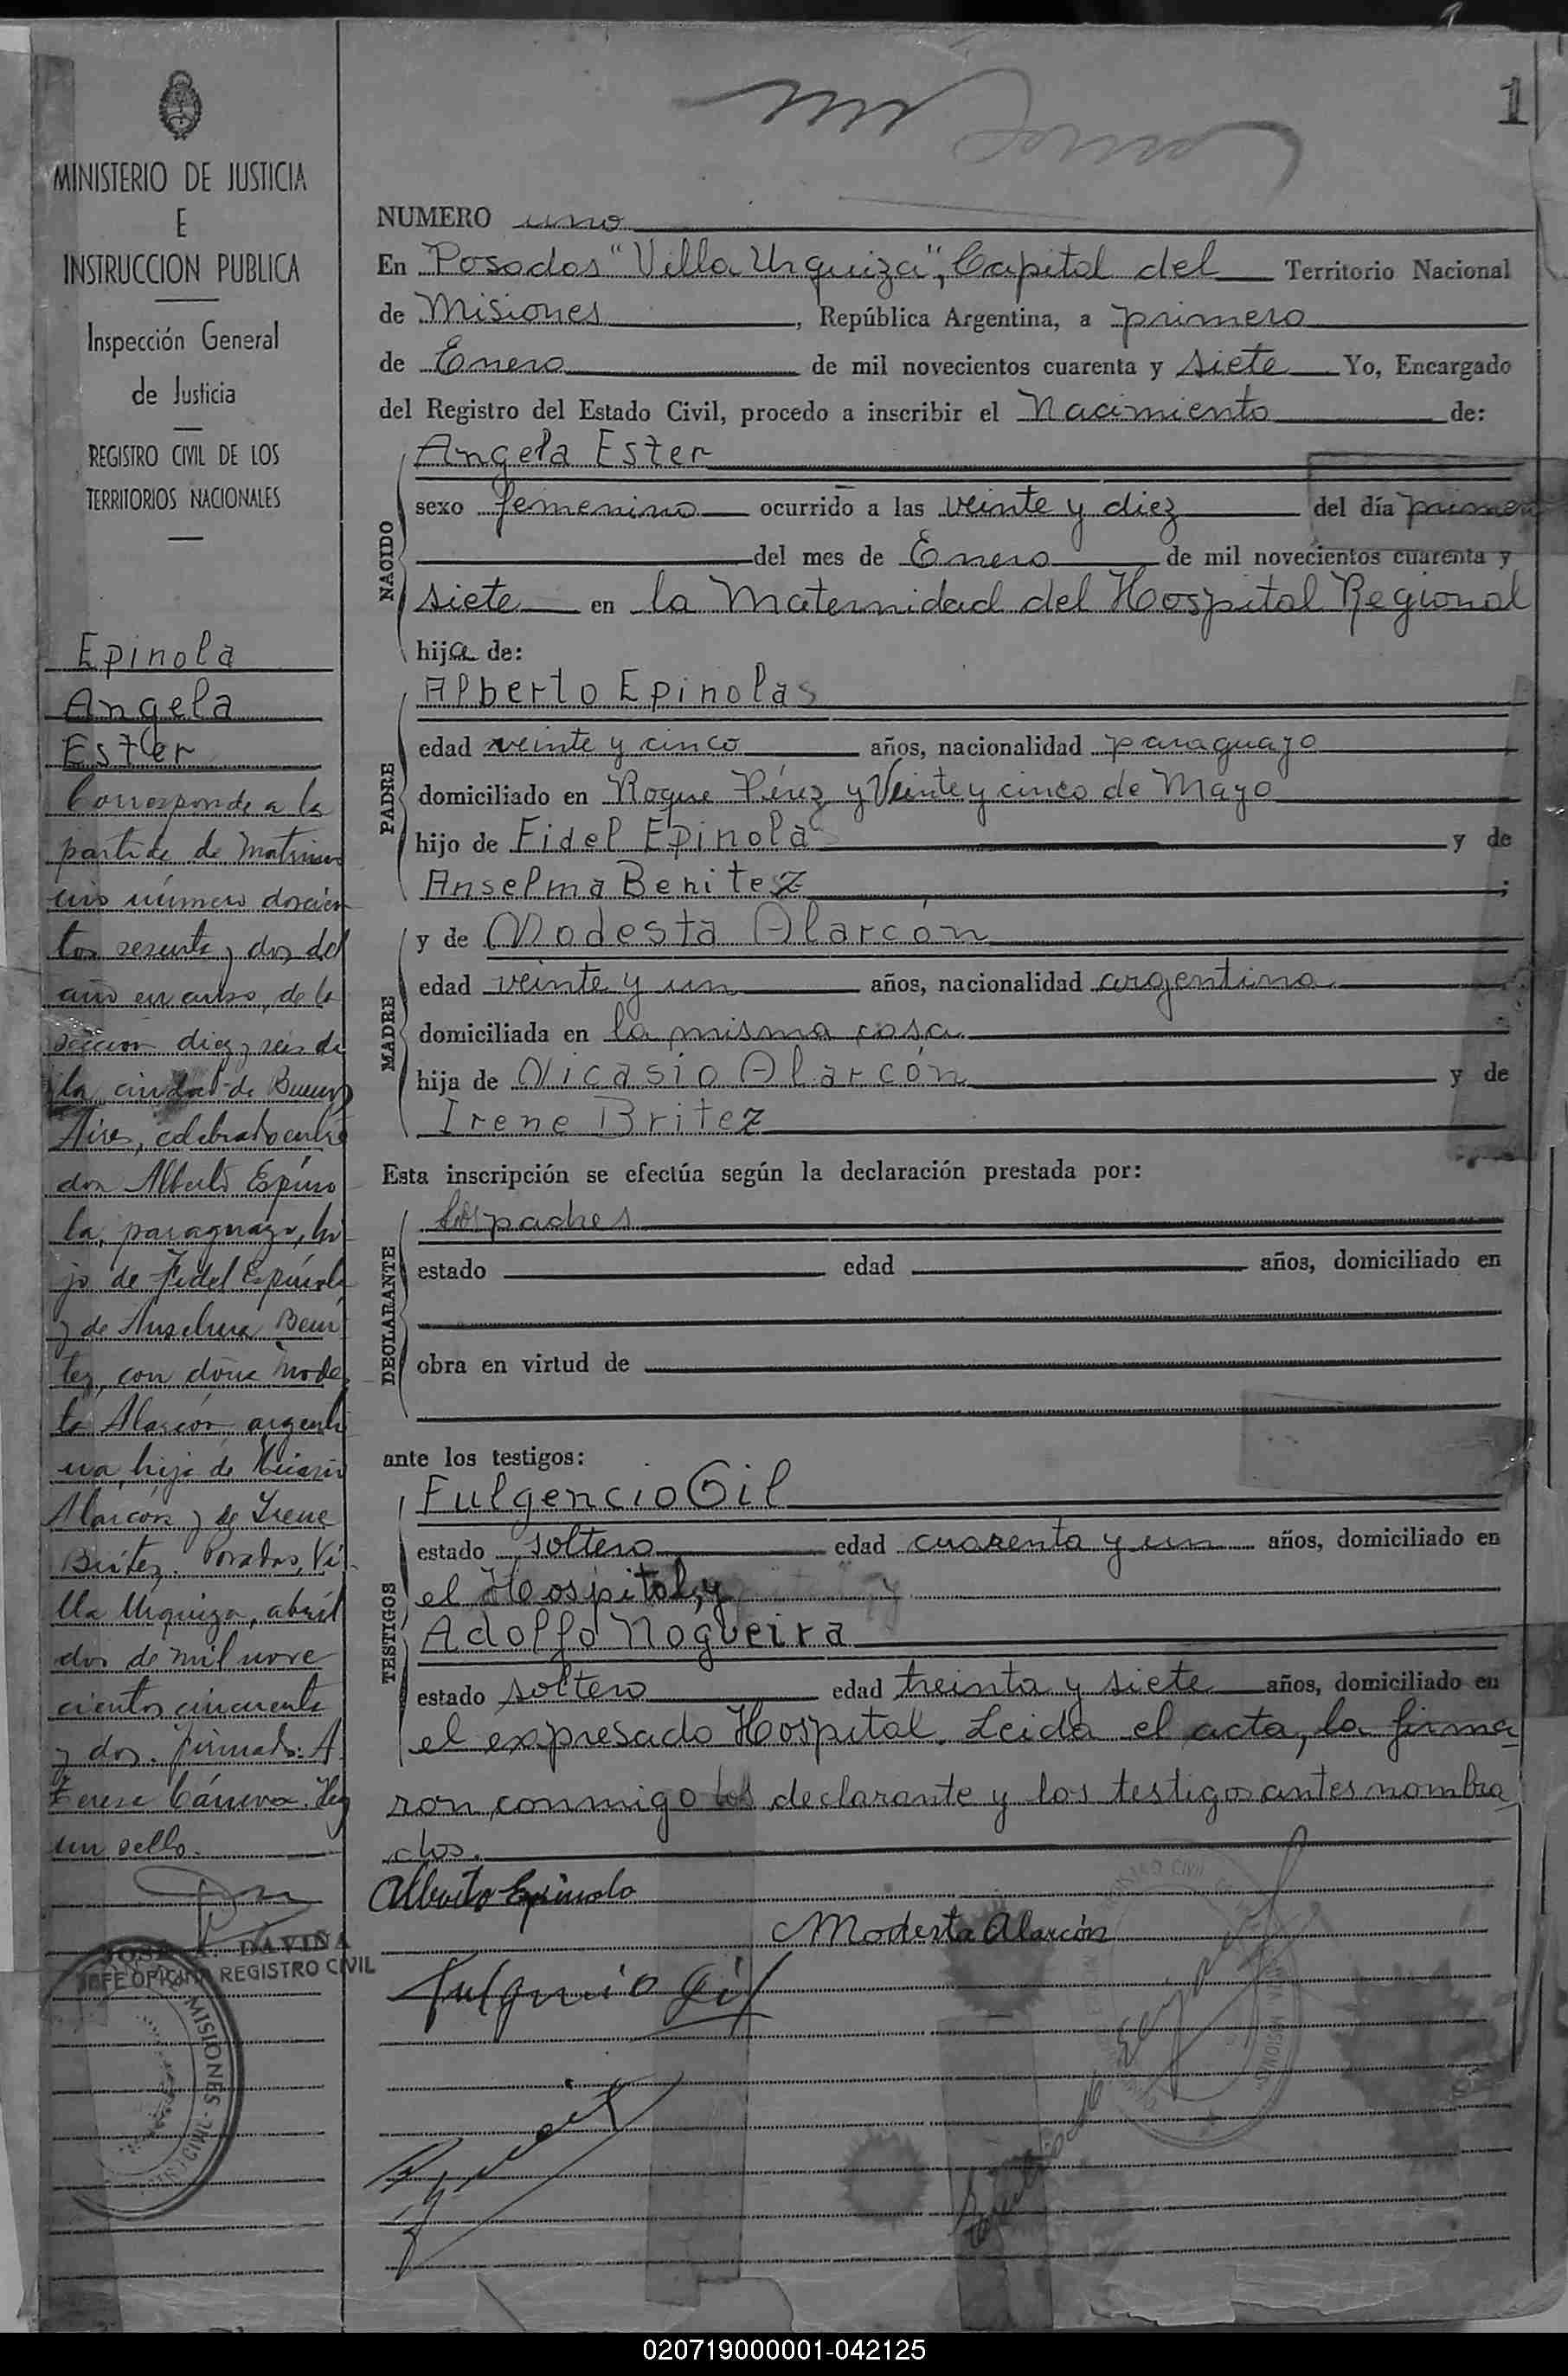 1
MINISTERIO DE JUSTICIA
E
INSTRUCCION PUBLICA
Inspección General
de Justicia
REGISTRO CIVIL DE LOS
TERRITORIOS NACIONALES
Epinola
Angela
Ester
Corresponde a la
partida de Matrimo
nio número doscien
tos sesenta y dos del
año en curso, de la
sección diez y seis de
la ciudad de Buenos
Aires, celebrado entre
don Alberto Espíno
la, paraguayo, hi
jo de Fidel Espínola
y de Anselma Bení
tez, con doña Modes
ta Alarcón argenti
na, hija de Nicasio
Alarcón y de Irene
Brítez. Posadas, Vi
lla Urquiza, abril
dos de mil nove
cientos cincuenta
y dos. firmado: A.
Hay
un sello.
JOSE A. DAVIÑA
JEFE OFICINA REGISTRO CIVIL
MISIONES
NUMERO uno
En Posadas "Villa Urquiza", Capital del Territorio Nacional
de Misiones, República Argentina, a primero
de Enero de mil novecientos cuarenta y siete Yo, Encargado
del Registro del Estado Civil, procedo a inscribir el Nacimiento de:
NACIDO
Angela Ester
sexo femenino ocurrido a las veinte y diez del día primero
del mes de Enero de mil novecientos cuarenta y
siete en la Maternidad del Hospital Regional
hija de:
PADRE
Alberto Epinolas
edad veinte y cinco años, nacionalidad paraguayo
domiciliado en Roque Pérez y Veinte y cinco de Mayo
hijo de Fidel Epinola y de
Anselma Benitez;
MADRE
y de Modesta Alarcón
edad veinte y un años, nacionalidad argentina
domiciliada en la misma casa
hija de Nicasio Alarcón y de
Irene Britez
Esta inscripción se efectúa según la declaración prestada por:
DECLARANTE
los padres
estado edad años, domiciliado en
obra en virtud de
ante los testigos:
TESTIGOS
Fulgencio Gil
estado soltero edad cuarenta y un años, domiciliado en
el Hospital, y
Adolfo Nogueira
estado soltero edad treinta y siete años, domiciliado en
el expresado Hospital. Leida el acta, la firma
ron conmigo los declarante y los testigos antes nombra
dos.
Alberto Epinola
Modesta Alarcón
Fulgencio Gil
020719000001-042125